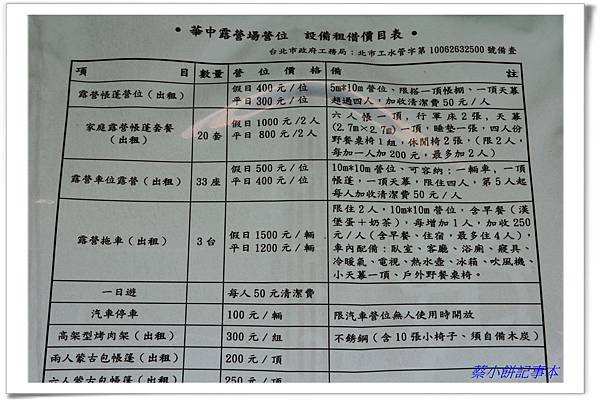 •華中露營場營位 設備租借價目表•
台北市政府工務局：北市工水管字第 10062632500 號備查
項 目 數量 營 位 價 格 備 註
露營帳蓬營位（出租） 假日 400 元/位 5m*10m 營位、限搭一頂帳棚、一頂天幕
平日 300 元/位 超過四人，加收清潔費 50 元/人
家庭露營帳蓬套餐 20 套 假日 1000 元/2人 六人帳一頂，行軍床2張，天幕
（出租） 平日 800 元/2人 (2.7m×2.7m)一頂，睡墊一張，四人份
野餐桌椅1組，休閒椅2張，（限2人，
每加一人加 200 元，最多加2人）
露營車位露營（出租） 33 座 假日 500 元/位 10m*10m 營位、可容納：一輛車，一頂
平日 400 元/位 帳蓬，一頂天幕，限住四人，第5人起
每人加收清潔費 50 元/人
露營拖車（出租） 3 台 假日 1500 元/輛 限住2人，10m*10m 營位，含早餐（漢
平日 1200 元/輛 堡蛋＋奶茶），每增加1人，加收 250
元/人（含早餐、住宿，最多住4人），
車內配備：臥室、客廳、浴廁、寢具、
冷暖氣、電視、熱水壺、冰箱、吹風機、
小天幕一頂、戶外野餐桌椅。
一日遊 每人 50 元清潔費
汽車停車 100 元/輛 限汽車營位無人使用時開放
高架型烤肉架（出租） 300 元/組 不銹鋼（含 10 張小椅子、須自備木炭）
兩人蒙古包帳蓬（出租） 200 元/頂
六人蒙古包帳蓬（出租） 250 元/頂
蔡小餅記事本